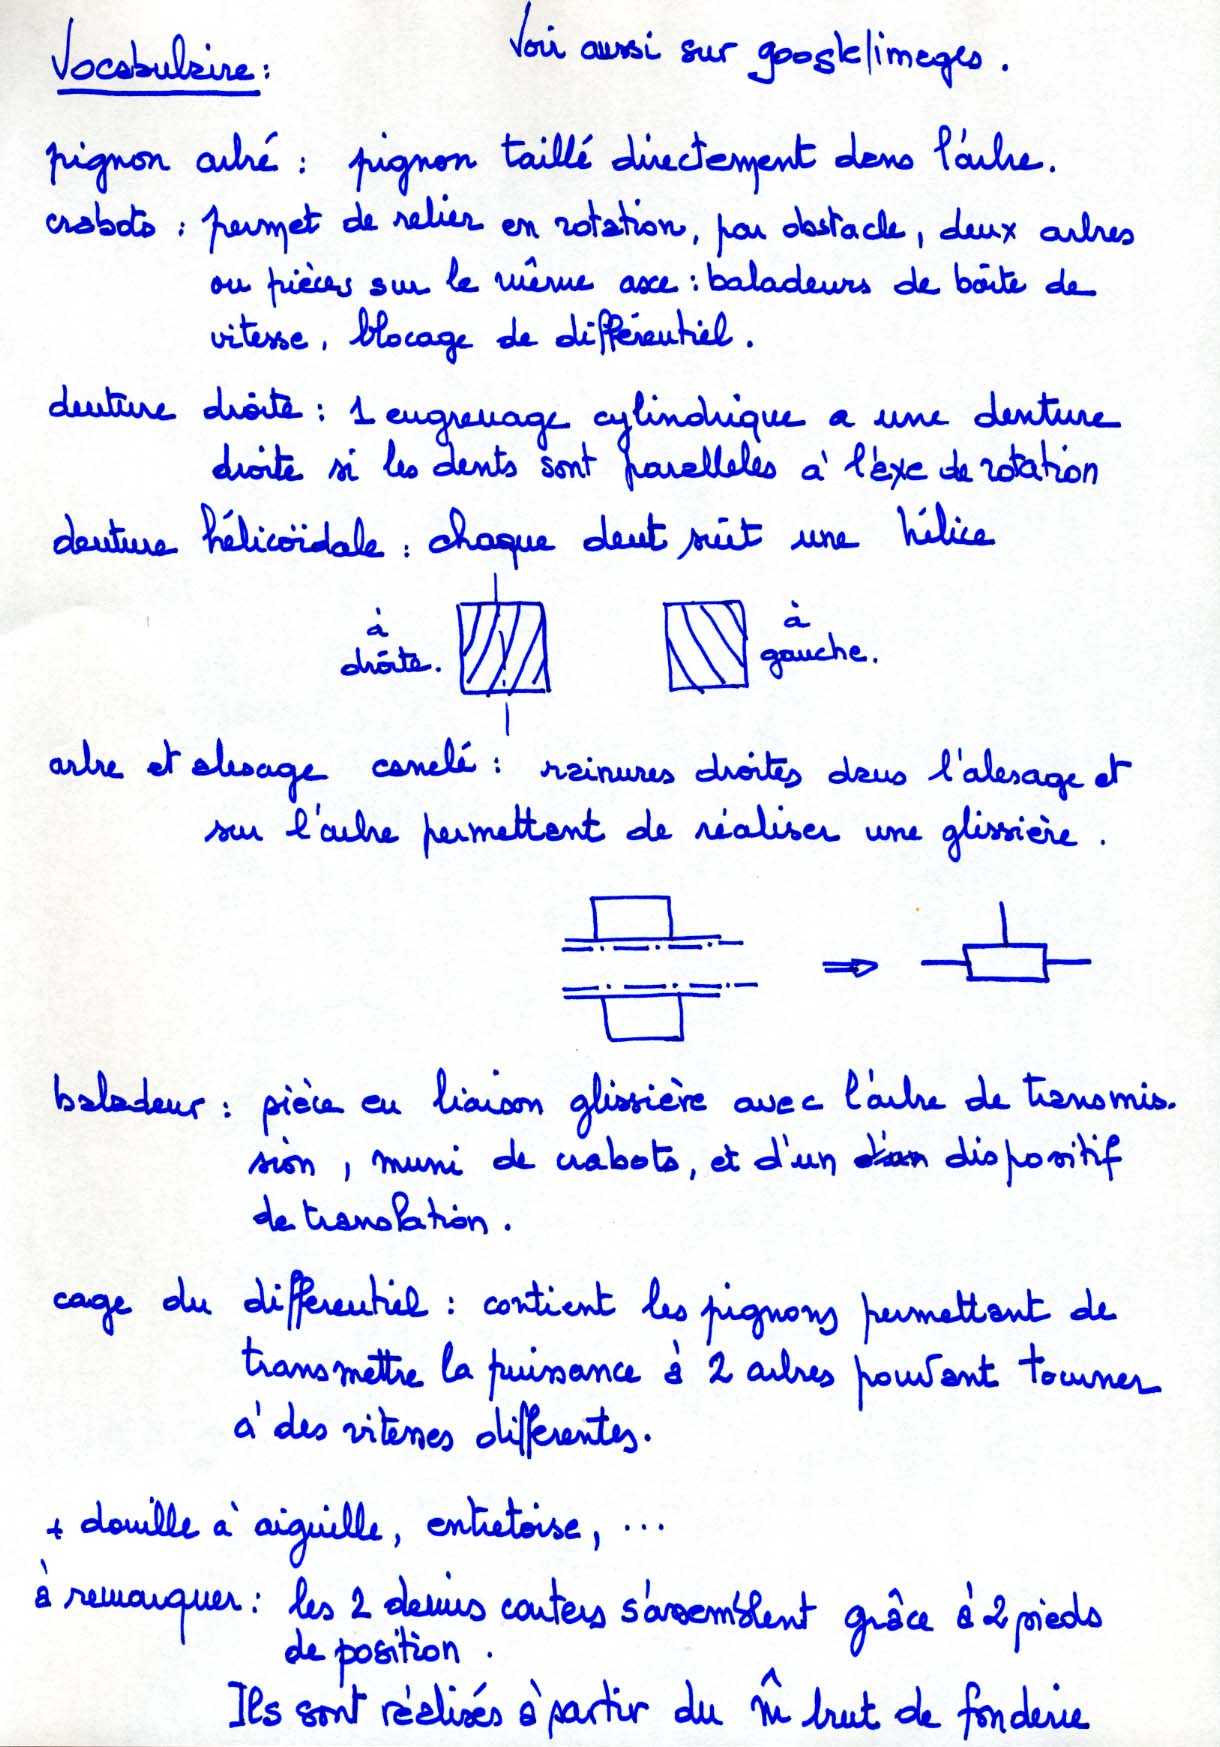 Vocabulaire :
Voir aussi sur google/images.
pignon arbré : pignon taillé directement dans l'arbre.
crabots : permet de relier en rotation, par obstacle, deux arbres
ou pièces sur le même axe : baladeurs de boîte de
vitesse, blocage de différentiel.
denture droite : 1 engrenage cylindrique a une denture
droite si les dents sont paralleles à l'axe de rotation
denture hélicoïdale : chaque dent suit une hélice
à
droite.
à
gauche.
arbre et alesage canelé : rainures droites dans l'alesage et
sur l'arbre permettent de réaliser une glissière.
baladeur : pièce en liaison glissière avec l'arbre de transmis.
sion, muni de crabots, et d'un d'un dispositif
de translation.
cage du différentiel : contient les pignons permettant de
transmettre la puissance à 2 arbres pouvant tourner
à des vitesses differentes.
+ douille à aiguille, entretoise, ...
à remarquer : les 2 demis carters s'assemblent grâce à 2 pieds
de position.
Ils sont réalisés à partir du m̂ brut de fonderie